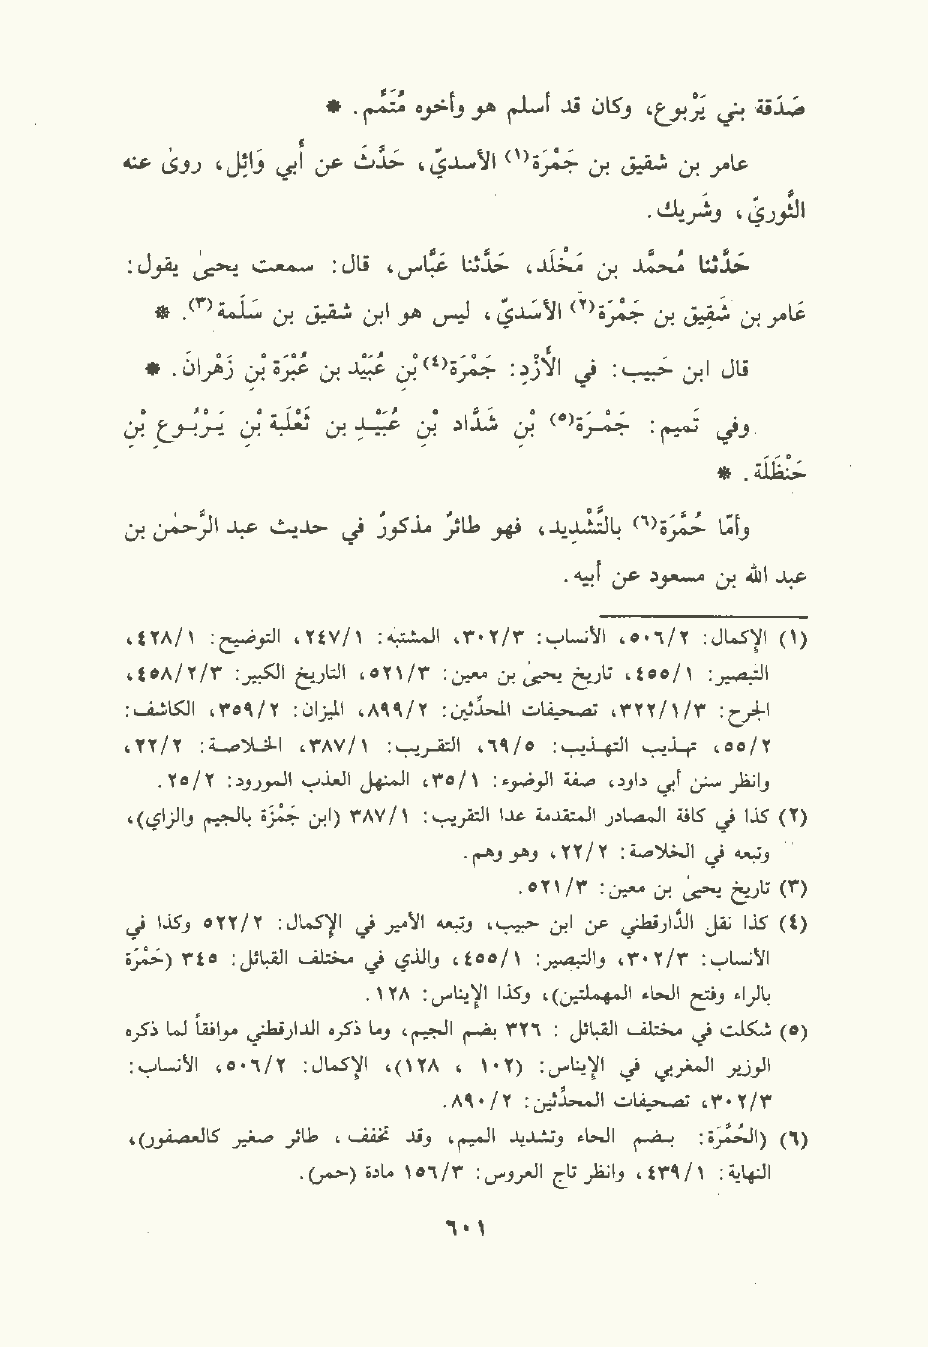 صَدَقة بني يَرْبوع، وكان قد أسلم هو وأخوه مُتَمِّم. *
عامر بن شقيق بن جَمْرَة(١) الأسديّ، حَدَّث عن أبي وَائِل، روىٰ عنه
الثَّوريّ، وشَريك.
حَدَّثنا مُحمَّد بن مَخْلَد، حَدَّثنا عَبَّاس، قال: سمعت يحيىٰ يقول:
عَامر بن شَقِيق بن جَمْرَة(٢) الأسَديّ، ليس هو ابن شقيق بن سَلَمة(٣). *
قال ابن حَبيب: في الأَزْدِ: جَمْرَة(٤) بْنِ عُبَيْد بن عُبْرَة بْنِ زَهْرانَ. *
وفي تَميم: جَمْرَة(٥) بْنِ شَدَّاد بْنِ عُبَيْد بن ثَعْلَبَة بْنِ يَرْبُوع بْنِ
حَنْظَلَة. *
وأمّا حُمَّرَة(٦) بالتَّشْدِيد، فهو طائرٌ مذكورٌ في حديث عبد الرَّحمٰن بن
عبد الله بن مسعود عن أبيه.
(١) الإكمال: ٥٠٦/٢، الأنساب: ٣٠٢/٣، المشتبه: ٢٤٧/١، التوضيح: ٤٢٨/١،
التبصير: ٤٥٥/١، تاريخ يحيىٰ بن معين: ٥٢١/٣، التاريخ الكبير: ٤٥٨/٢/٣،
الجرح: ٣٢٢/١/٣، تصحيفات المحدِّثين: ٨٩٩/٢، الميزان: ٣٥٩/٢، الكاشف:
٥٥/٢، تهذيب التهذيب: ٦٩/٥، التقريب: ٣٨٧/١، الخلاصة: ٢٢/٢،
وانظر سنن أبي داود، صفة الوضوء: ٣٥/١، المنهل العذب المورود: ٢٥/٢.
(٢) كذا في كافة المصادر المتقدمة عدا التقريب: ٣٨٧/١ (ابن جَمْزَة بالجيم والزاي)،
وتبعه في الخلاصة: ٢٢/٢، وهو وهم.
(٣) تاريخ يحيىٰ بن معين: ٥٢١/٣.
(٤) كذا نقل الدّارقطني عن ابن حبيب، وتبعه الأمير في الإكمال: ٥٢٢/٢ وكذا في
الأنساب: ٣٠٢/٣، والتبصير: ٤٥٥/١، والذي في مختلف القبائل: ٣٤٥ (خَمْرَة
بالراء وفتح الخاء المهملتين)، وكذا الإيناس: ١٢٨.
(٥) شكلت في مختلف القبائل : ٣٢٦ بضم الجيم، وما ذكره الدارقطني موافقاً لما ذكره
الوزير المغربي في الإيناس: (١٠٢ ، ١٢٨)، الإكمال: ٥٠٦/٢، الأنساب:
٣٠٢/٣، تصحيفات المحدِّثين: ٨٩٠/٢.
(٦) (الحُمَّرَة: بضم الحاء وتشديد الميم، وقد تخفف ، طائر صغير كالعصفور)،
النهاية: ٤٣٩/١، وانظر تاج العروس: ١٥٦/٣ مادة (حمر).
٦٠١